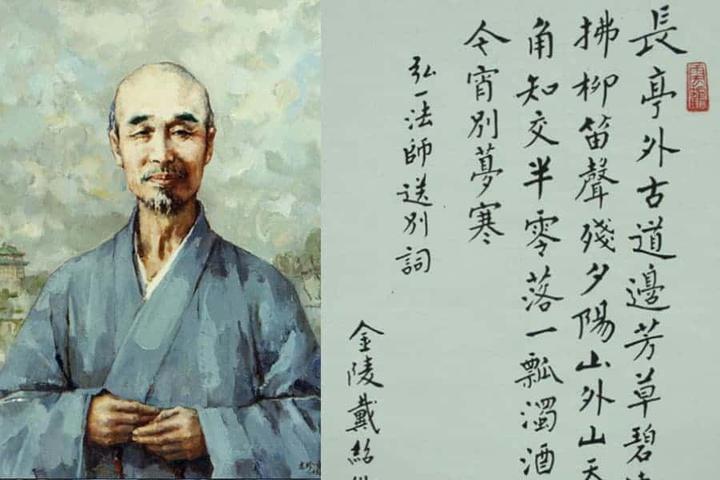 長亭外古道邊芳草碧
拂柳笛聲殘夕陽山外山天
角知交半零落一瓢濁酒
今宵別夢寒
弘一法師送別詞
金陵戴紹